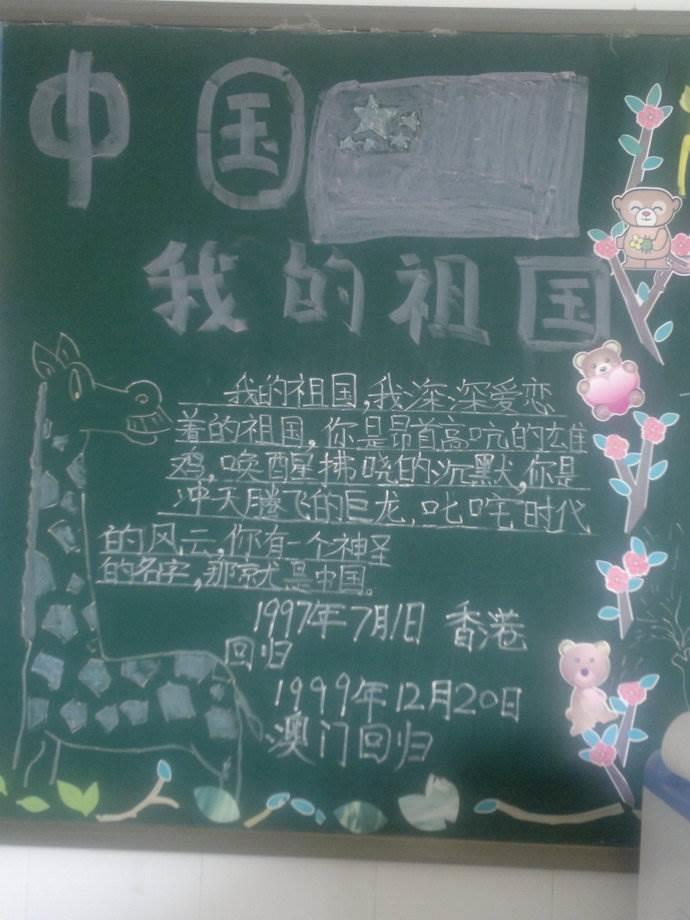 中国
我的祖国
我的祖国,我深深爱恋
着的祖国,你是昂首高吭的雄
鸡,唤醒拂晓的沉默,你是
冲天腾飞的巨龙,叱咤时代
的风云,你有一个神圣
的名字,那就是中国。
1997年7月1日 香港
回归
1999年12月20日
澳门回归